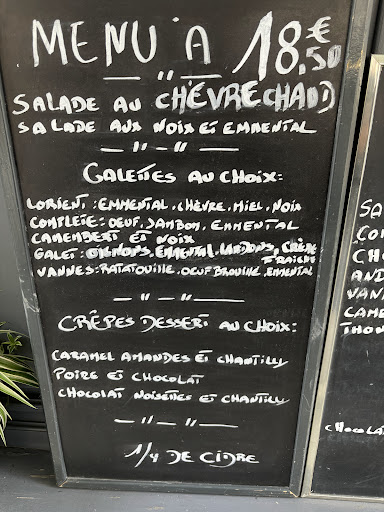 MENU À 18,50 €
SALADE AU CHÈVRE CHAUD
SALADE AUX NOIX ET EMMENTAL
GALETTES AU CHOIX:
LORIENT: EMMENTAL, CHÈVRE, MIEL, NOIX
COMPLETE: OEUF, JAMBON, EMMENTAL
CAMEMBERT ET NOIX
GALET: OIGNONS, EMMENTAL, LARDONS, CRÈME FRAICHE
VANNES: RATATOUILLE, OEUF BROUILLÉ, EMMENTAL
CRÊPES DESSERT AU CHOIX:
CARAMEL AMANDES ET CHANTILLY
POIRE ET CHOCOLAT
CHOCOLAT NOISETTES ET CHANTILLY
1/4 DE CIDRE
SA
CO
CH
AND
VAN
CAME
THON
CHOCOLA